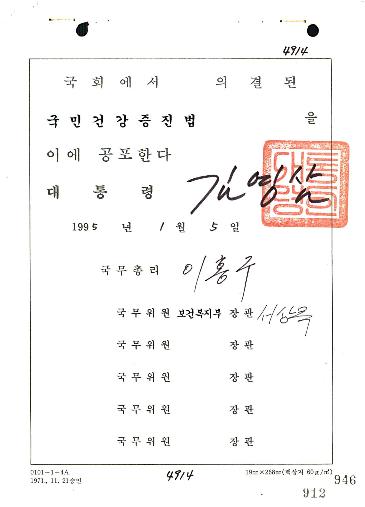 4914
국회에서 의결된
국민건강증진법 을
이에 공포한다
대통령 김영삼
대통령의인
1995 년 1 월 5 일
국무총리 이홍구
국무위원 보건복지부 장관 서상목
국무위원 장관
국무위원 장관
국무위원 장관
국무위원 장관
0101-1-4A
1971. 11. 21승인
4914
946
912